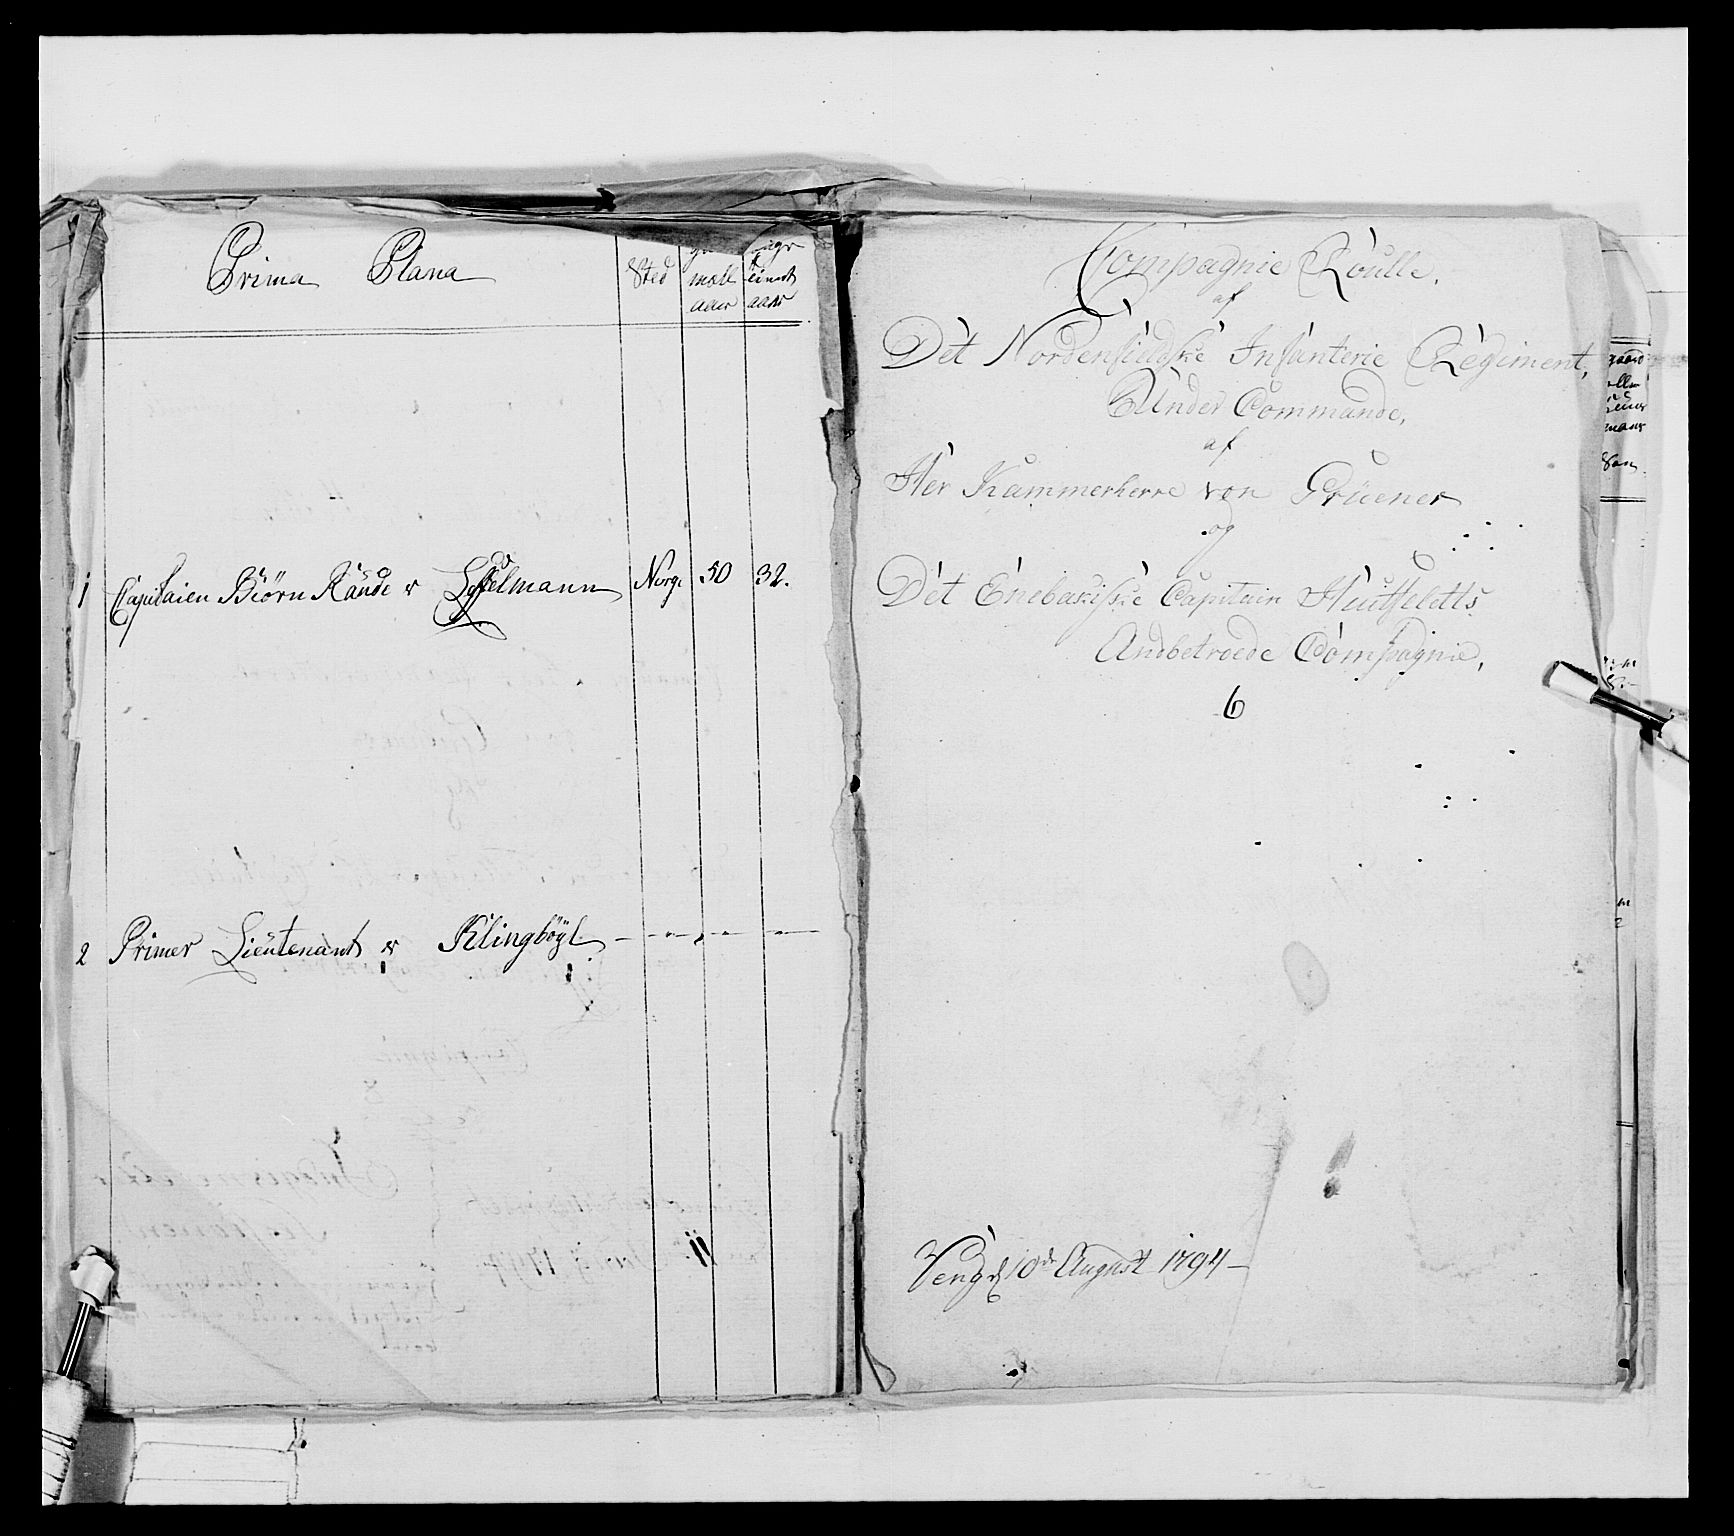 Prima Plana
Sted
mell
aar
tient
aar
1 Capitaien Biörn Rände v Lesselmann Norge 50 32.
2 Primer Lieutenant v Klingböyl
Compagnie Roulle,
af
Det Nordenfieldske Infanterie Regiment,
Under Commande,
af
Her Kammerherre von Grüener
og
Det Enebakiske Capitain Huitfeletts
Andbetroede Compagnie,
6
Veng d 10de August 1794